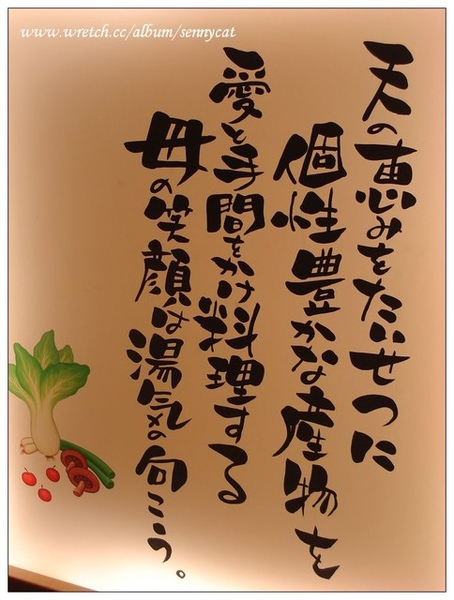 www.wretch.cc/album/sennycat
天の恵みをたいせつに
個性豊かな産物を
愛と手間をかけ料理する
母の笑顔は湯気の向こう。